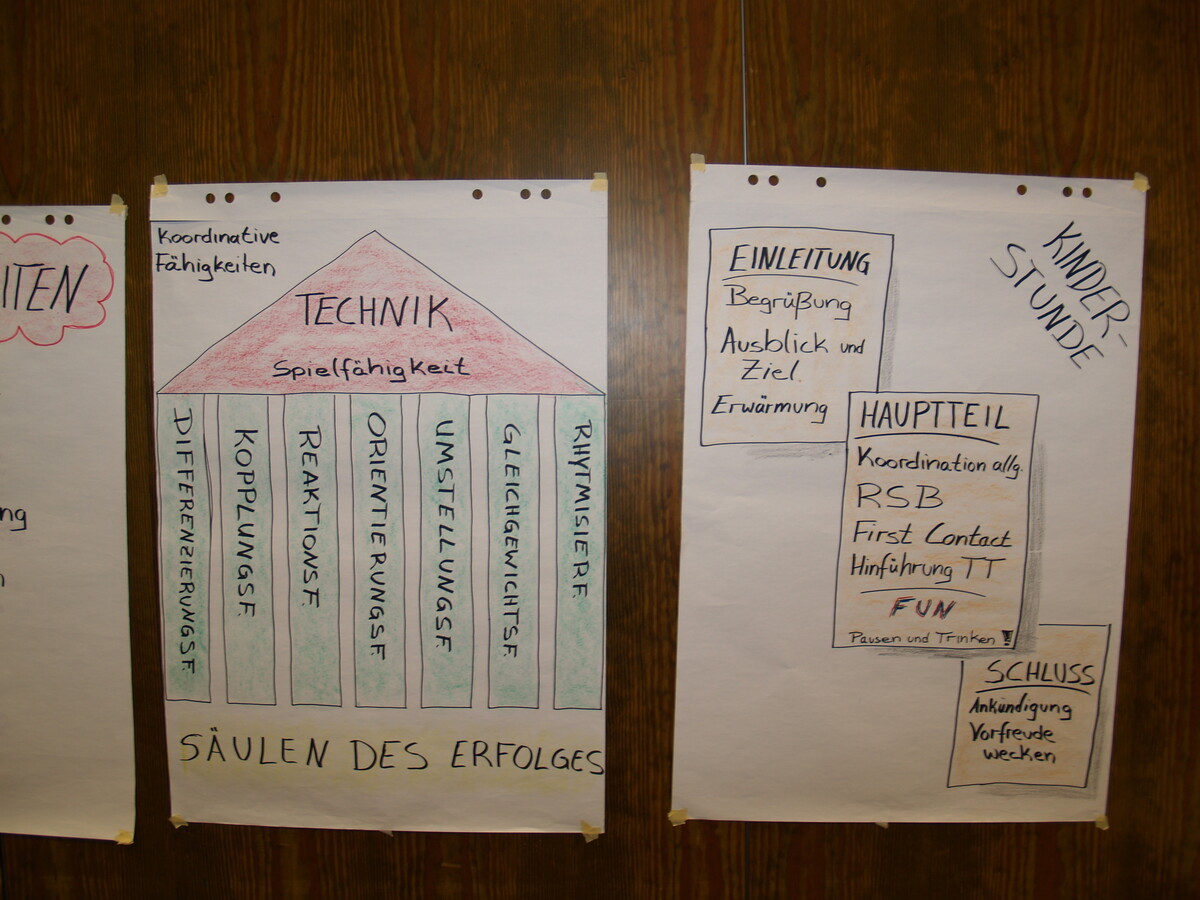 ITEN
ng
n
Koordinative
Fähigkeiten
TECHNIK
Spielfähigkeit
DIFFERENZIERUNGSF.
KOPPLUNGSF.
REAKTIONSF.
ORIENTIERUNGSF.
UMSTELLUNGSF.
GLEICHGEWICHTSF.
RHYTMISIERF.
SÄULEN DES ERFOLGES
KINDER-
STUNDE
EINLEITUNG
Begrüßung
Ausblick und
Ziel.
Erwärmung
HAUPTTEIL
Koordination allg.
RSB
First Contact
Hinführung TT
FUN
Pausen und Trinken !
SCHLUSS
Ankündigung
Vorfreude
wecken